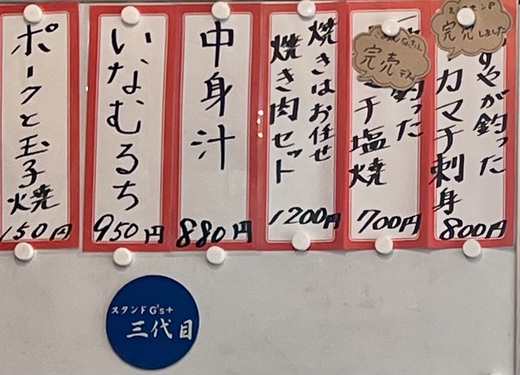 完売しました
すやが釣った
カマチ刺身
800円
完売です
釣った
マチ塩焼
700円
焼きはお任せ
焼き肉セット
1200円
中身汁
880円
いなむるち
950円
ポークと玉子焼
150円
スタンドG's+
三代目